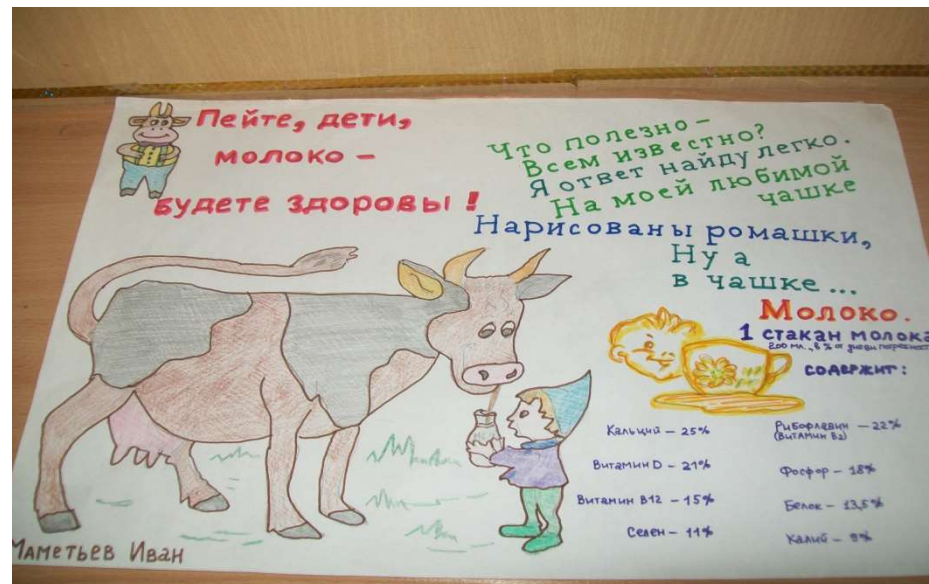 Пейте, дети,
молоко –
будете здоровы!
Что полезно –
Всем известно?
Я ответ найду легко.
На моей любимой
чашке
Нарисованы ромашки,
Ну а
в чашке...
Молоко.
1 стакан молока
200 мл., в % от дневн
содержит:
Кальций – 25%
Витамин D – 21%
Витамин B12 – 15%
Селен – 11%
Рибофлавин – 22%
(Витамин B2)
Фосфор – 18%
Белок – 13,5%
Калий – 9%
Маметьев Иван